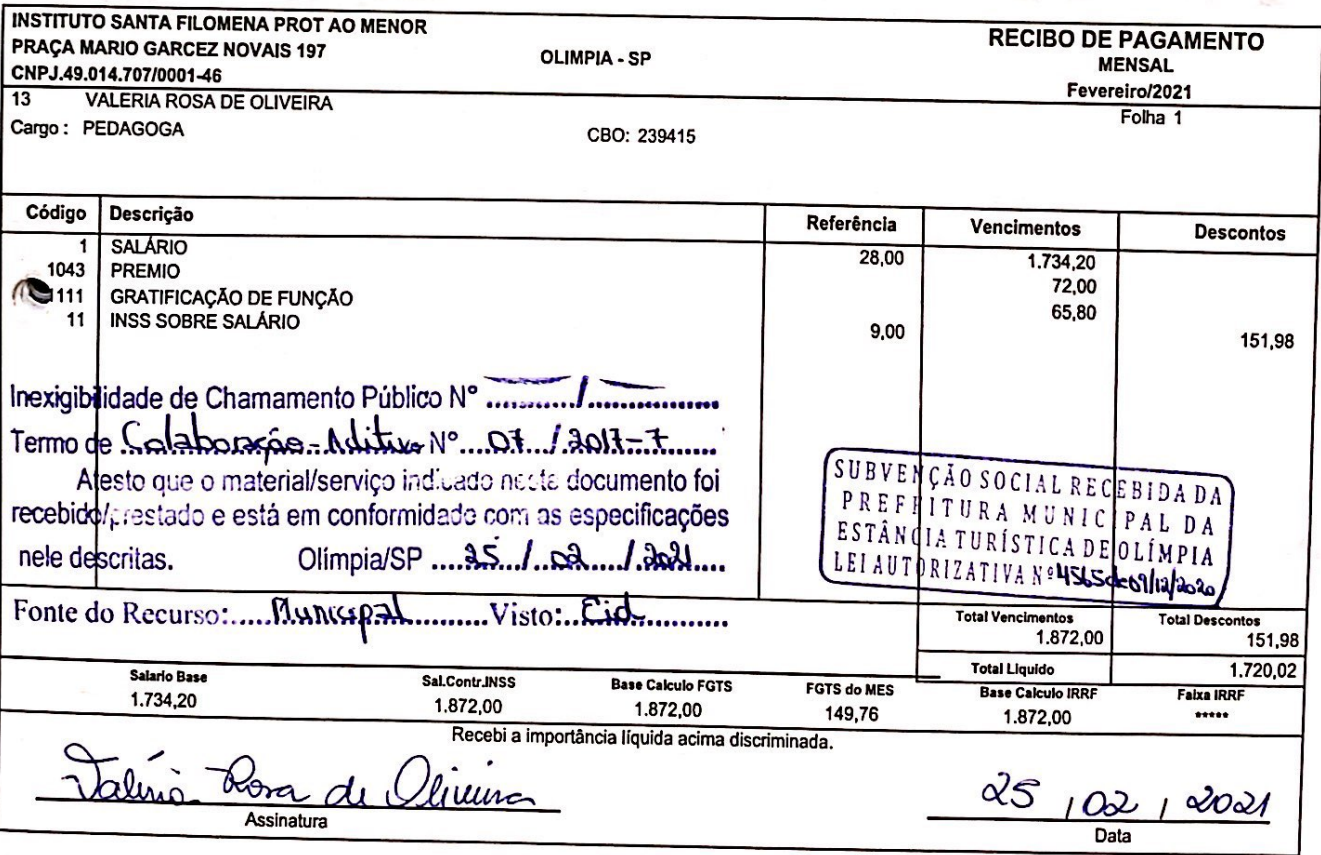 INSTITUTO SANTA FILOMENA PROT AO MENOR
PRAÇA MARIO GARCEZ NOVAIS 197
CNPJ.49.014.707/0001-46
OLIMPIA - SP
RECIBO DE PAGAMENTO
MENSAL
Fevereiro/2021
Folha 1
13 VALERIA ROSA DE OLIVEIRA
Cargo : PEDAGOGA
CBO: 239415
Código Descrição Referência Vencimentos Descontos
1 SALÁRIO 28,00 1.734,20
1043 PREMIO 72,00
1111 GRATIFICAÇÃO DE FUNÇÃO 65,80
11 INSS SOBRE SALÁRIO 9,00 151,98
Inexigibilidade de Chamamento Público Nº ............/.................
Termo de Colaboração - Aditivo Nº 07 / 2017-7
Atesto que o material/serviço indicado neste documento foi
recebido/prestado e está em conformidade com as especificações
nele descritas. Olímpia/SP 25 / 02 / 2021
SUBVENÇÃO SOCIAL RECEBIDA DA
PREFEITURA MUNICIPAL DA
ESTÂNCIA TURÍSTICA DE OLÍMPIA
LEI AUTORIZATIVA Nº 4565 de 09/12/2020
Fonte do Recurso: Municipal Visto: Cid
Total Vencimentos Total Descontos
1.872,00 151,98
Total Liquido 1.720,02
Salario Base Sal.Contr.INSS Base Calculo FGTS FGTS do MES Base Calculo IRRF Faixa IRRF
1.734,20 1.872,00 1.872,00 149,76 1.872,00 *****
Recebi a importância líquida acima discriminada.
Valéria Rosa de Oliveira
Assinatura
25 / 02 / 2021
Data